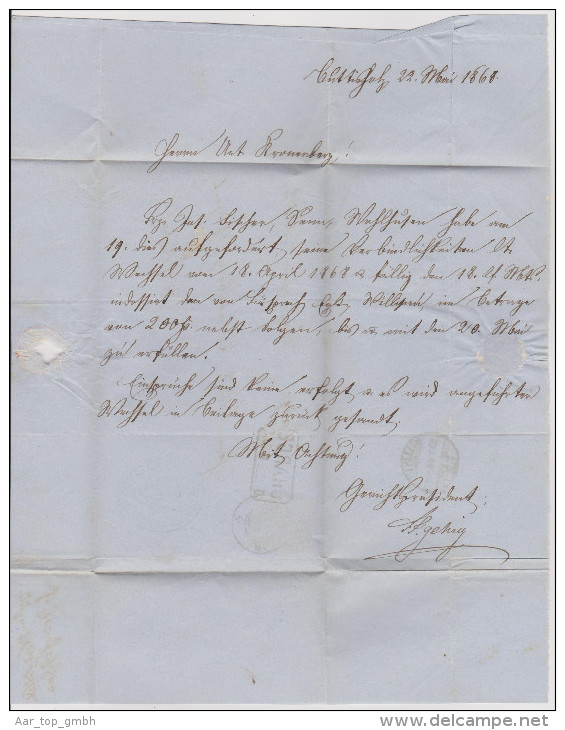 Buttisholz 22. Mai 1868
Herrn Ant Kronenberg!
Jos. Fischer, Senn, habe am
19. dies aufgefordert, seine Verbindlichkeiten lt
Wechsel vom 18. April 1868 & fällig den 18. lf Mts.
indossirt von im Betrage
von 200 fr. nebst Folgen, bis & mit den 20. Mai
zu erfüllen.
Einsprüche sind keine erfolgt & es wird angeführter
Wechsel in Beilage zurück gesandt.
Mit Achtung!
Gerichtspräsident:
Aar_top_gmbh
www.delcampe.net